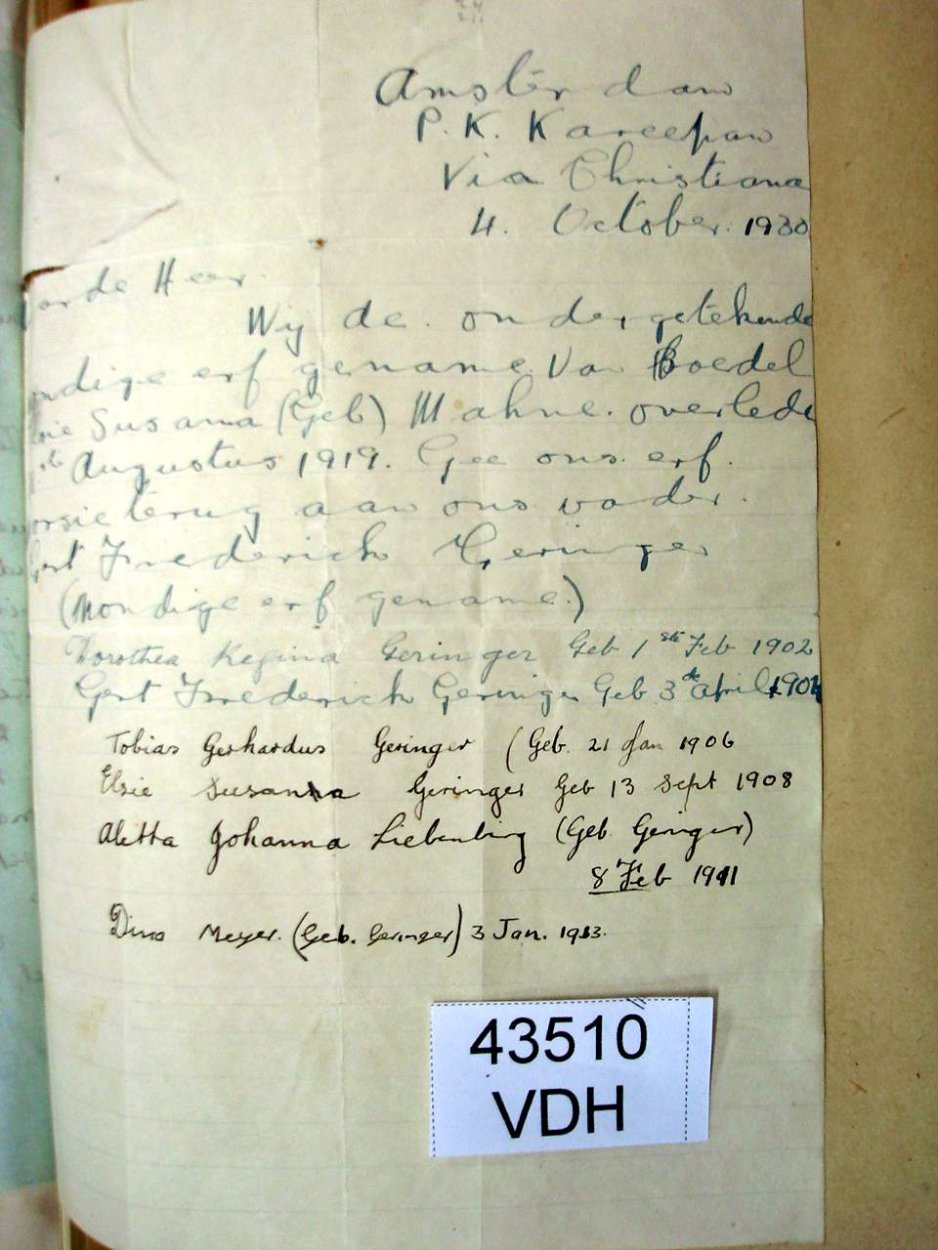 Amsterdam
P. K. Kareepan
Via Christiana
4. October. 1930
arde Heer.
Wij de. ondergetekende
ndige erf gename Van Boedel
sie Susana (Geb) Mahne. overlede
Augustus 1919. Gee ons. erf.
orsie terug aan ons vader.
Gert Frederick Geringer
(Mondige erf gename.)
Dorothea Regina Geringer Geb 1st Feb 1902
Gert Frederick Geringer Geb 3de April 1904
Tobias Gerhardus Geringer (Geb. 21 Jan 1906
Elsie Susanna Geringer Geb 13 Sept 1908
Aletta Johanna Liebenberg (Geb. Geringer)
8 Feb 1911
Dina Meyer. (Geb. Geringer) 3 Jan. 1913.
43510
VDH